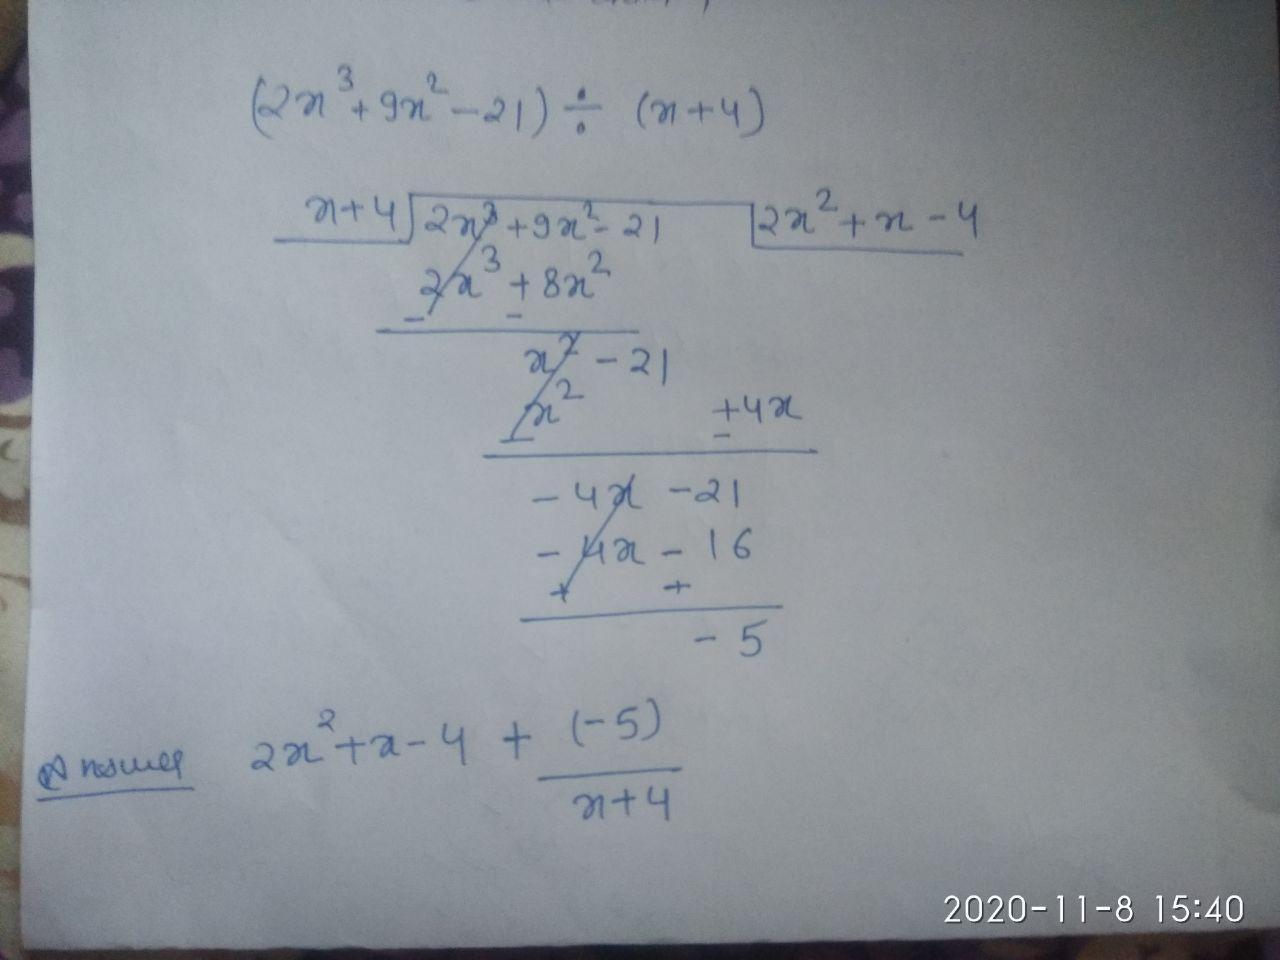 (2x³+9x²-21) ÷ (x+4)
x+4 2x³+9x²-21 2x²+x-4
2x³+8x²
- -
x²-21
x² +4x
- -
-4x -21
-4x - 16
+ +
-5
Answer 2x²+x-4 + (-5)
x+4
2020-11-8 15:40